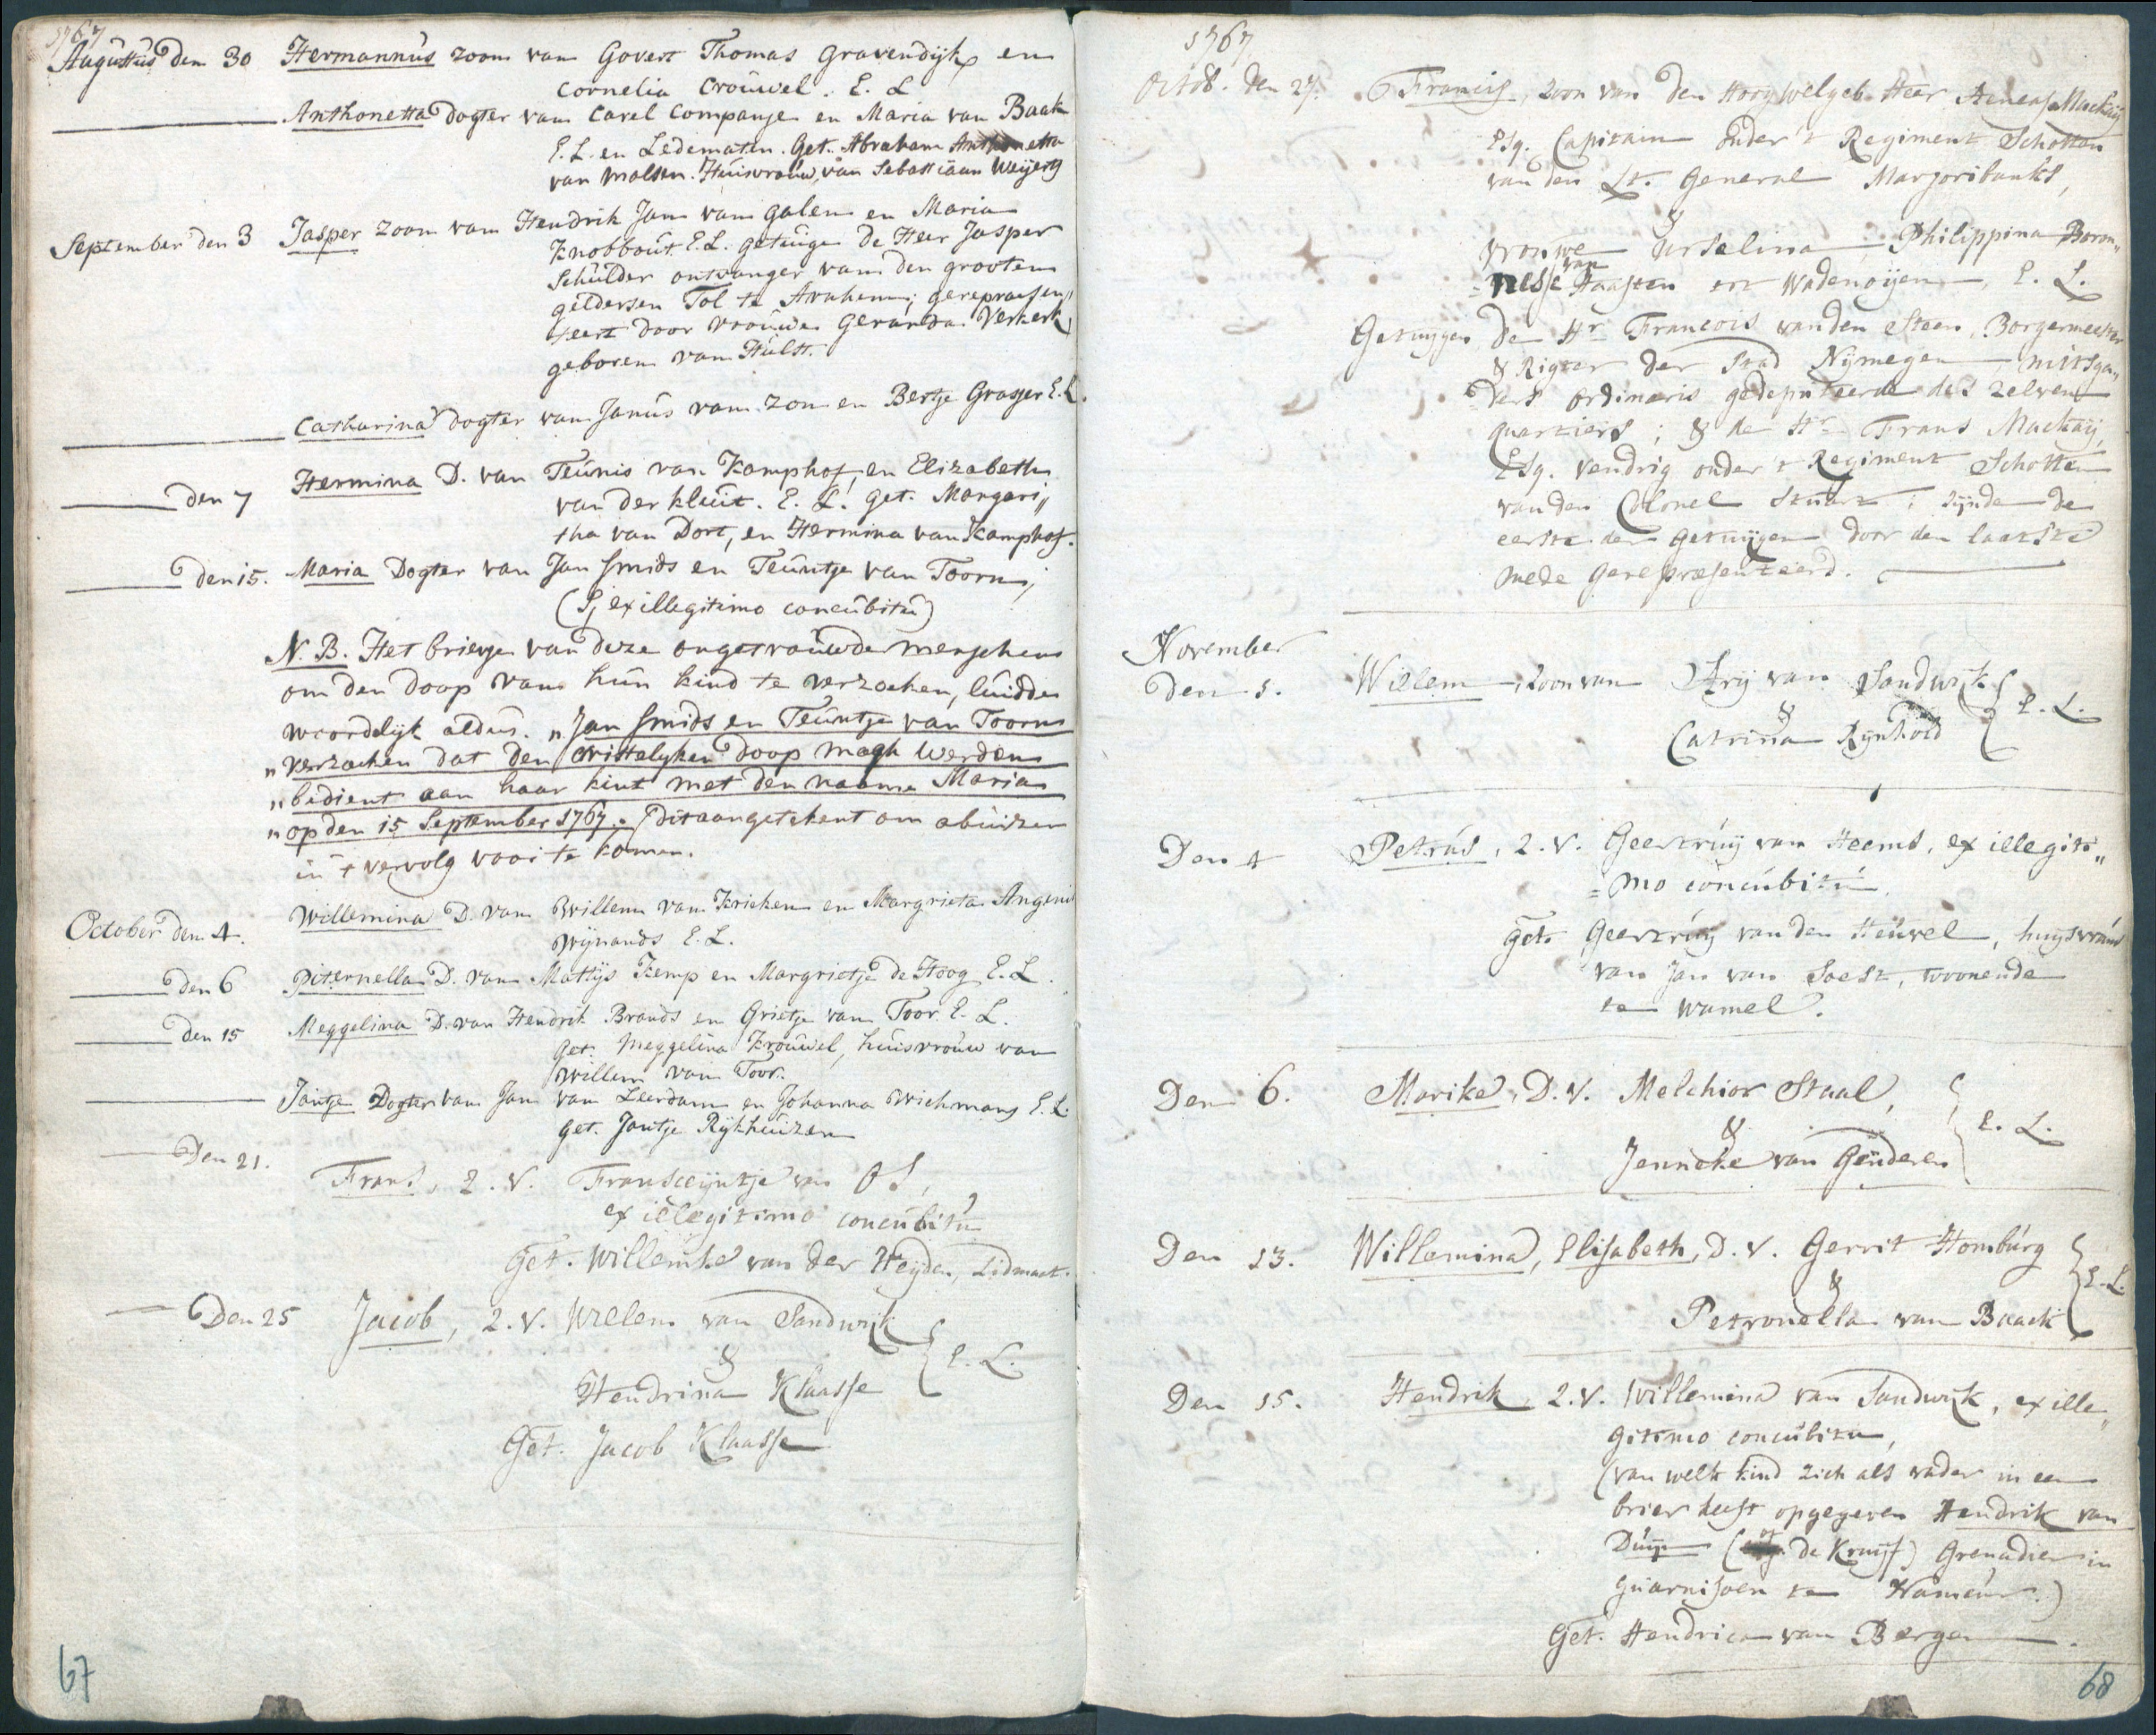 1767
Augustus den 30 Hermannus zoon van Govert Thomas Gravendijk en
Cornelia Crouwel. E. L
Anthonetta dogter van Carel Companje en Maria van Baak
E. L. en Ledematen. Get. Abraham Anthonetta
van Malsen. Huisvrouw van Sebastiaan Weijers
September den 3 Jasper zoon van Hendrik Jan van Galen en Maria
Knobbout E. L. getuige De Heer Jasper
Schulder ontvanger van den grooten
geldersen Tol te Arnhem; gerepraesen„
teert door vrouwe Gerarda Verkerk
geboren van Hulst.
Catharina dogter van Janus van Zon en Bertje Grasser E. L.
den 7 Hermina D. van Teunis van Kamphof, en Elizabeth
van der kluit. E. L. get. Margari„
tha van Dort, en Hermina van Kamphof.
den 15. Maria Dogter van Jan Smids en Teuntje van Toorn,
(S, ex illegitimo concubitu)
N. B. Het briefje van deze ongetrouwde menschen
om den doop van hun kind te verzoeken, luidde
woordelijk aldus. „ Jan Smids en Teuntje van Toorn
„ verzoeken dat den cristelyken doop magh werden
„ bedient aan haar kint met den naame Maria
„ op den 15 September 1767. „ Dit aangetekent om abuizen
in 't vervolg voor te komen.
October den 4. Willemina D. van Willem van Kricken en Margrieta Angeni
Wijnands E. L.
den 6 Piternella D. van Mattijs Kemp en Margrietje de Hoog E. L.
den 15 Meggelina D. van Hendrik Brands en Grietje van Toor E. L.
get. Meggelina Krouwel, huisvrouw van
Willem van Toor.
Jantje Dogter van Jan van Leerdam en Johanna Wichmans E. L.
get. Jantje Rijkhuizen
Den 21. Frans, Z. V. Franseijntje van OS,
ex illegitimo concubitu
Get. Willemke van der Heyden, Lidmaet.
Den 25 Jacob, Z. V. Willem van Sandwijk
&
Hendrina Klaasse
E. L.
Get. Jacob Klaasse
67
1767
Octob. den 27. Francis, zoon van den Hoog Welgeb. Heer Aeneas Mackaij
Esq. Capitain onder 't Regiment Schotten
van den Lt. General Marjoribanks,
&
Vrouwe Urselina Philippina Baron„
nesse van Haaften tot Wadenoijen, E. L.
Getuijgen De Hr. Francois van den Steen, Borgermeester
& Rigter der Stad Nijmegen mitsga„
ders ordinaris gedeputeerde des zelven
quartiers; & de Hr. Frans Mackaij,
Esq. Vendrig onder 't Regiment Schotten
van den Colonel Stuart; sijnde de
eerste der getuijgen door den laatste
mede gerepraesenteerd.
November
Den 1. Willem, Zoon van Arij van Sandwijk
&
Catrina Rijnhold
E. L.
Den 4 Petrus, Z. V. Geertruij van Heems, ex illegiti„
mo concubitu.
get. Geertruij van den Heuvel, huysvrouw
van Jan van Soest, woonende
te Wamel.
Den 6. Marike, D. V. Melchior Staal,
&
Jenneke van Genderen
E. L.
Den 13. Willemina, Elisabeth, D. V. Gerrit Homburg
&
Petronella van Baack
E. L.
Den 15. Hendrik, Z. V. Willemina van Sandwijk, ex ille„
gitimo concubitu,
(van welk kind zich als vader in een
brief heeft opgegeven Hendrik van
Duijn (of de Kruijf) Grenadier in
guarnisoen te Nameur.)
Get. Hendrica van Bergen.
68